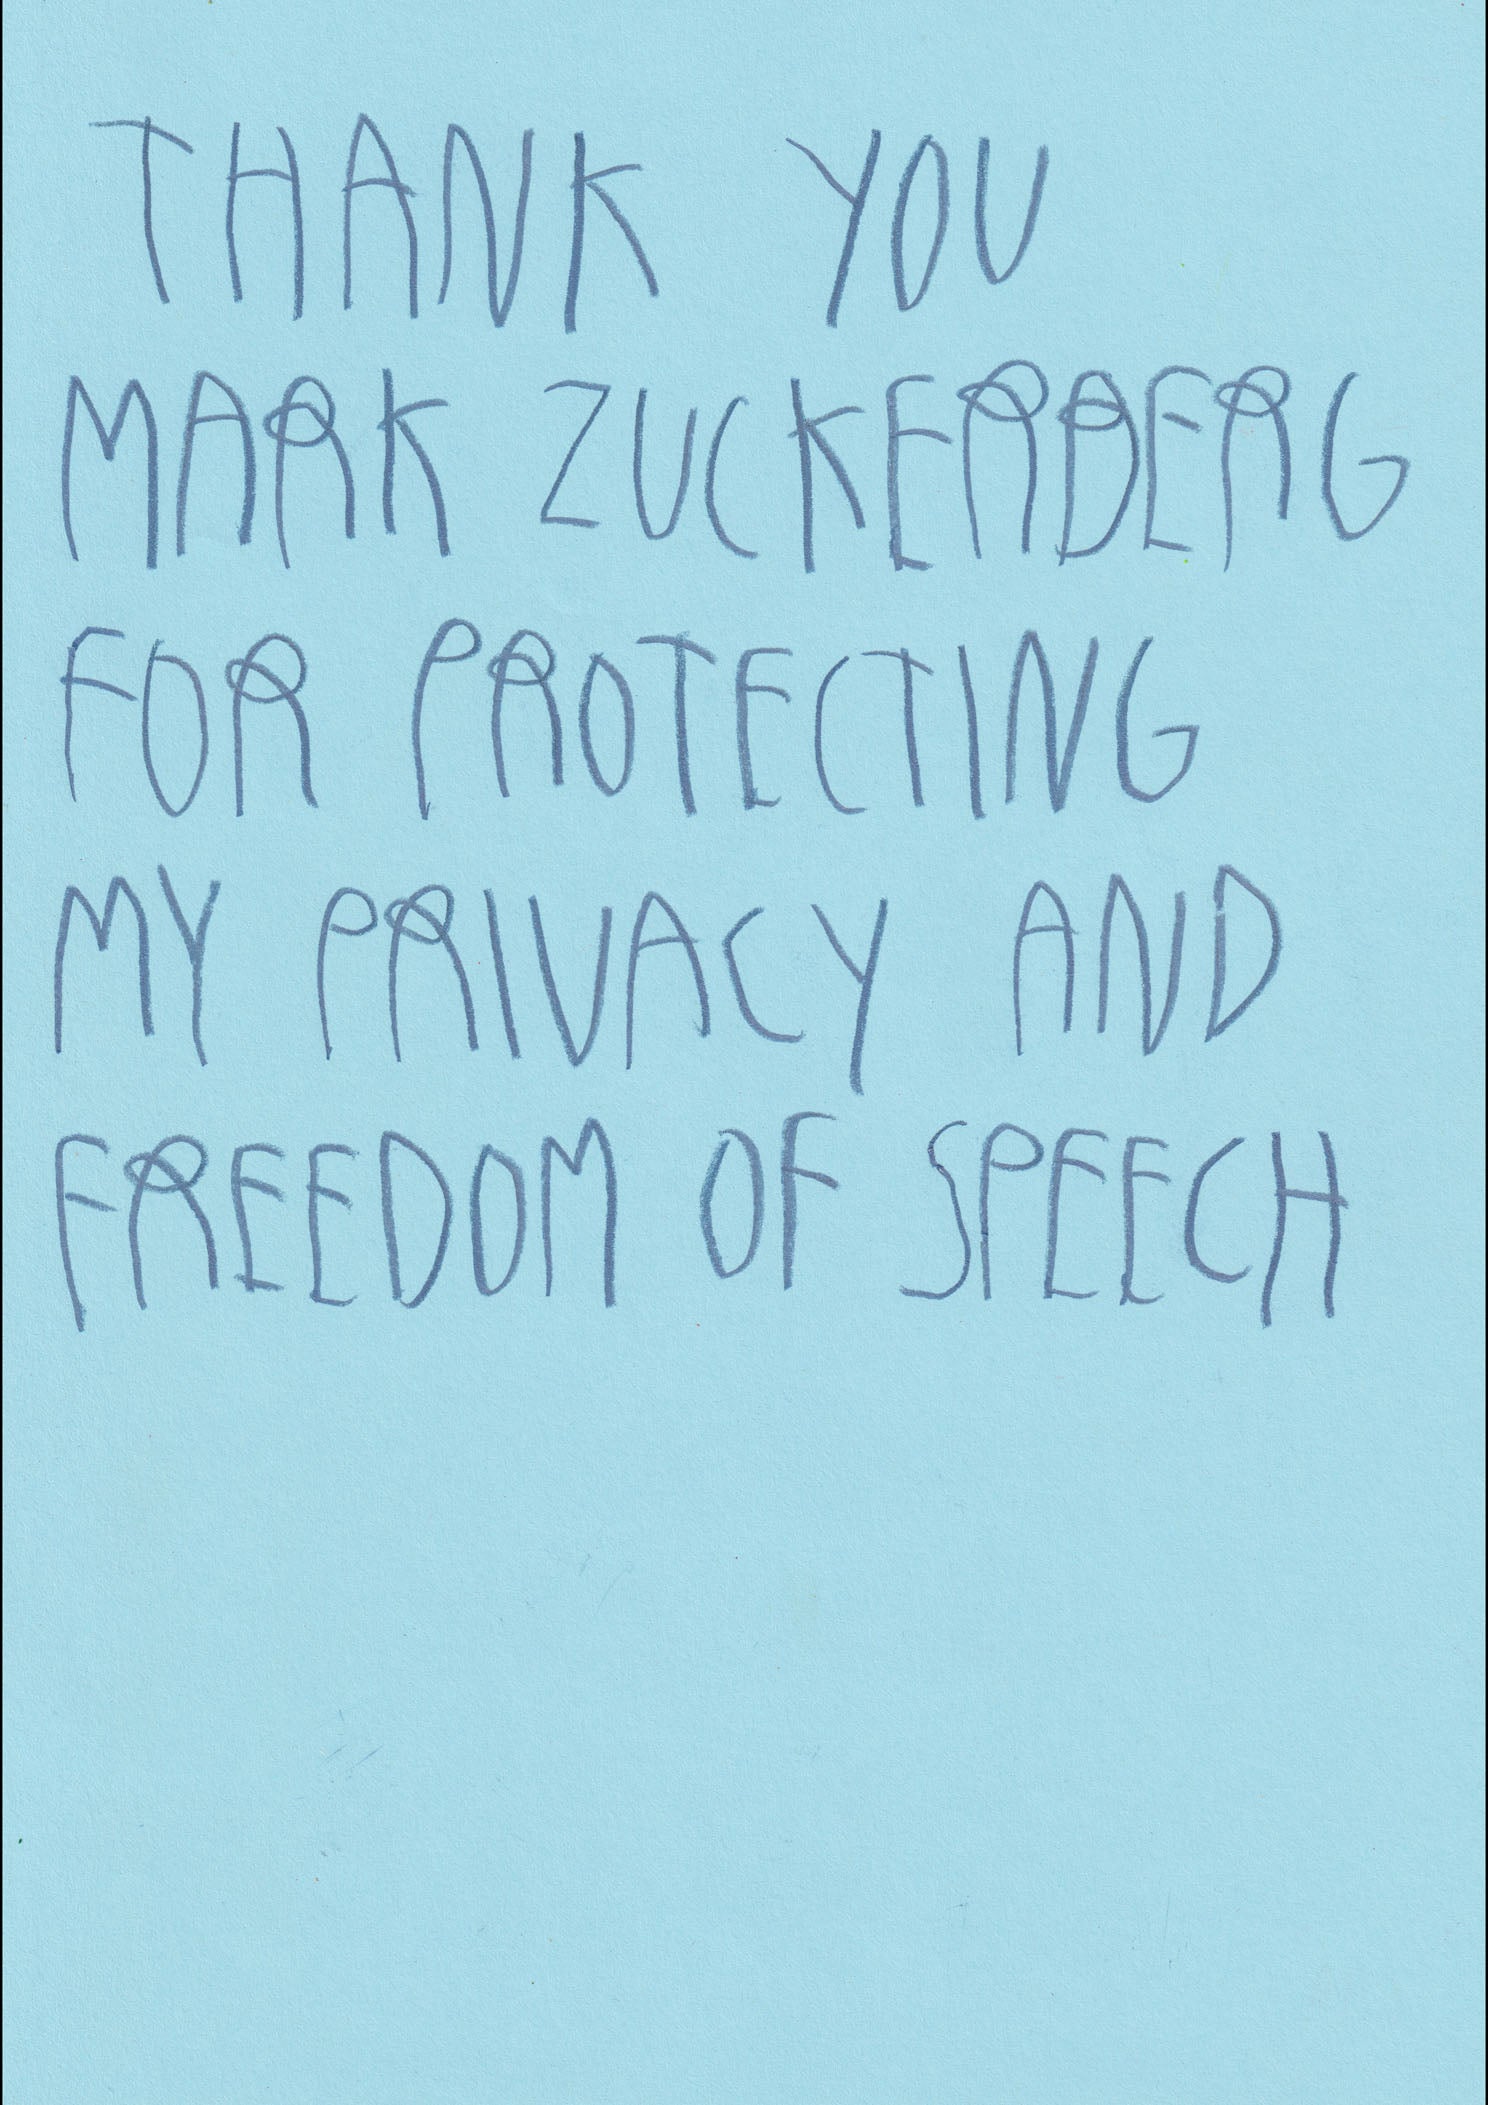 THANK YOU
MARK ZUCKERBERG
FOR PROTECTING
MY PRIVACY AND
FREEDOM OF SPEECH